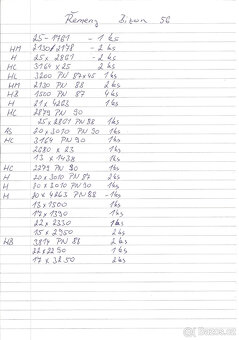 Řemeny Bizon 56
25-1761 - 1 ks
HM 2130/2178 - 2 ks
H 25 x 2861 - 2 ks
HC 3164 x 25 2 ks
HL 3200 PN 87x45 1 ks
HM 2130 PN 88 2 ks
HB 1500 PN 87 4 ks
H 21 x 4263 1 ks
HC 2879 PN 90
25 x 2801 PN 88 1 ks
AS 20 x 3010 PN 90 1 ks
HC 3164 PN 90 1 ks
2080 x 23 1 ks
13 x 1438 1 ks
HC 2279 PN 90 1 ks
H 20 x 3010 PN 87 2 ks
H 20 x 3010 PN 90 1 ks
H 20 x 4263 PN 88 1 ks
13 x 1500 1 ks
17 x 1390 1 ks
22 x 2330 1 ks
15 x 2950 2 ks
HB 3814 PN 88 2 ks
22 x 2250 1 ks
17 x 3250 2 ks
Bazos.cz